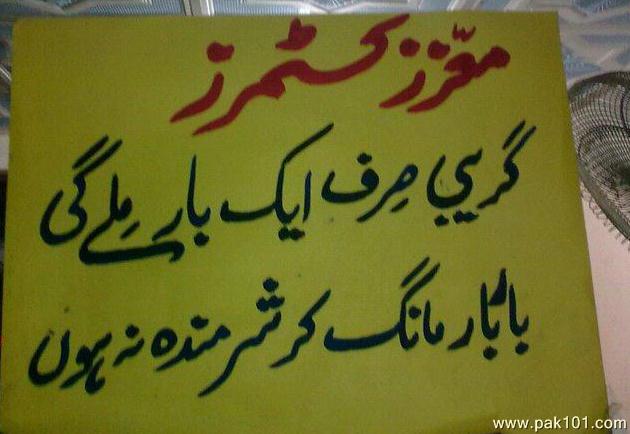 معزز کسٹمرز
گریبی صرف ایک بار ملے گی
باربار مانگ کر شرمندہ نہ ہوں
www.pak101.com